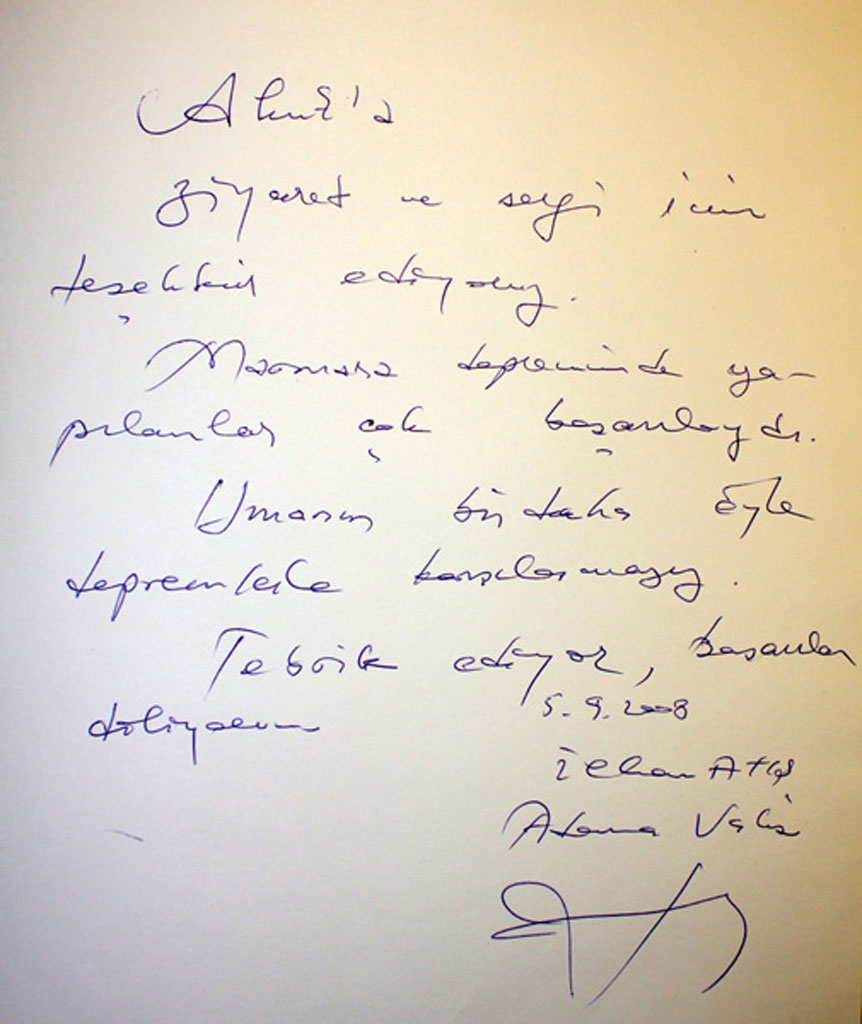 Akut'a
Ziyaret ve sergi için
teşekkür ediyoruz.
Marmara depreminde ya-
pılanlar çok başarılıydı.
Umarım bir daha öyle
depremlerle karşılaşmayız.
Tebrik ediyor, başarılar
diliyorum
5.9.2008
İlhan Atış
Adana Valisi